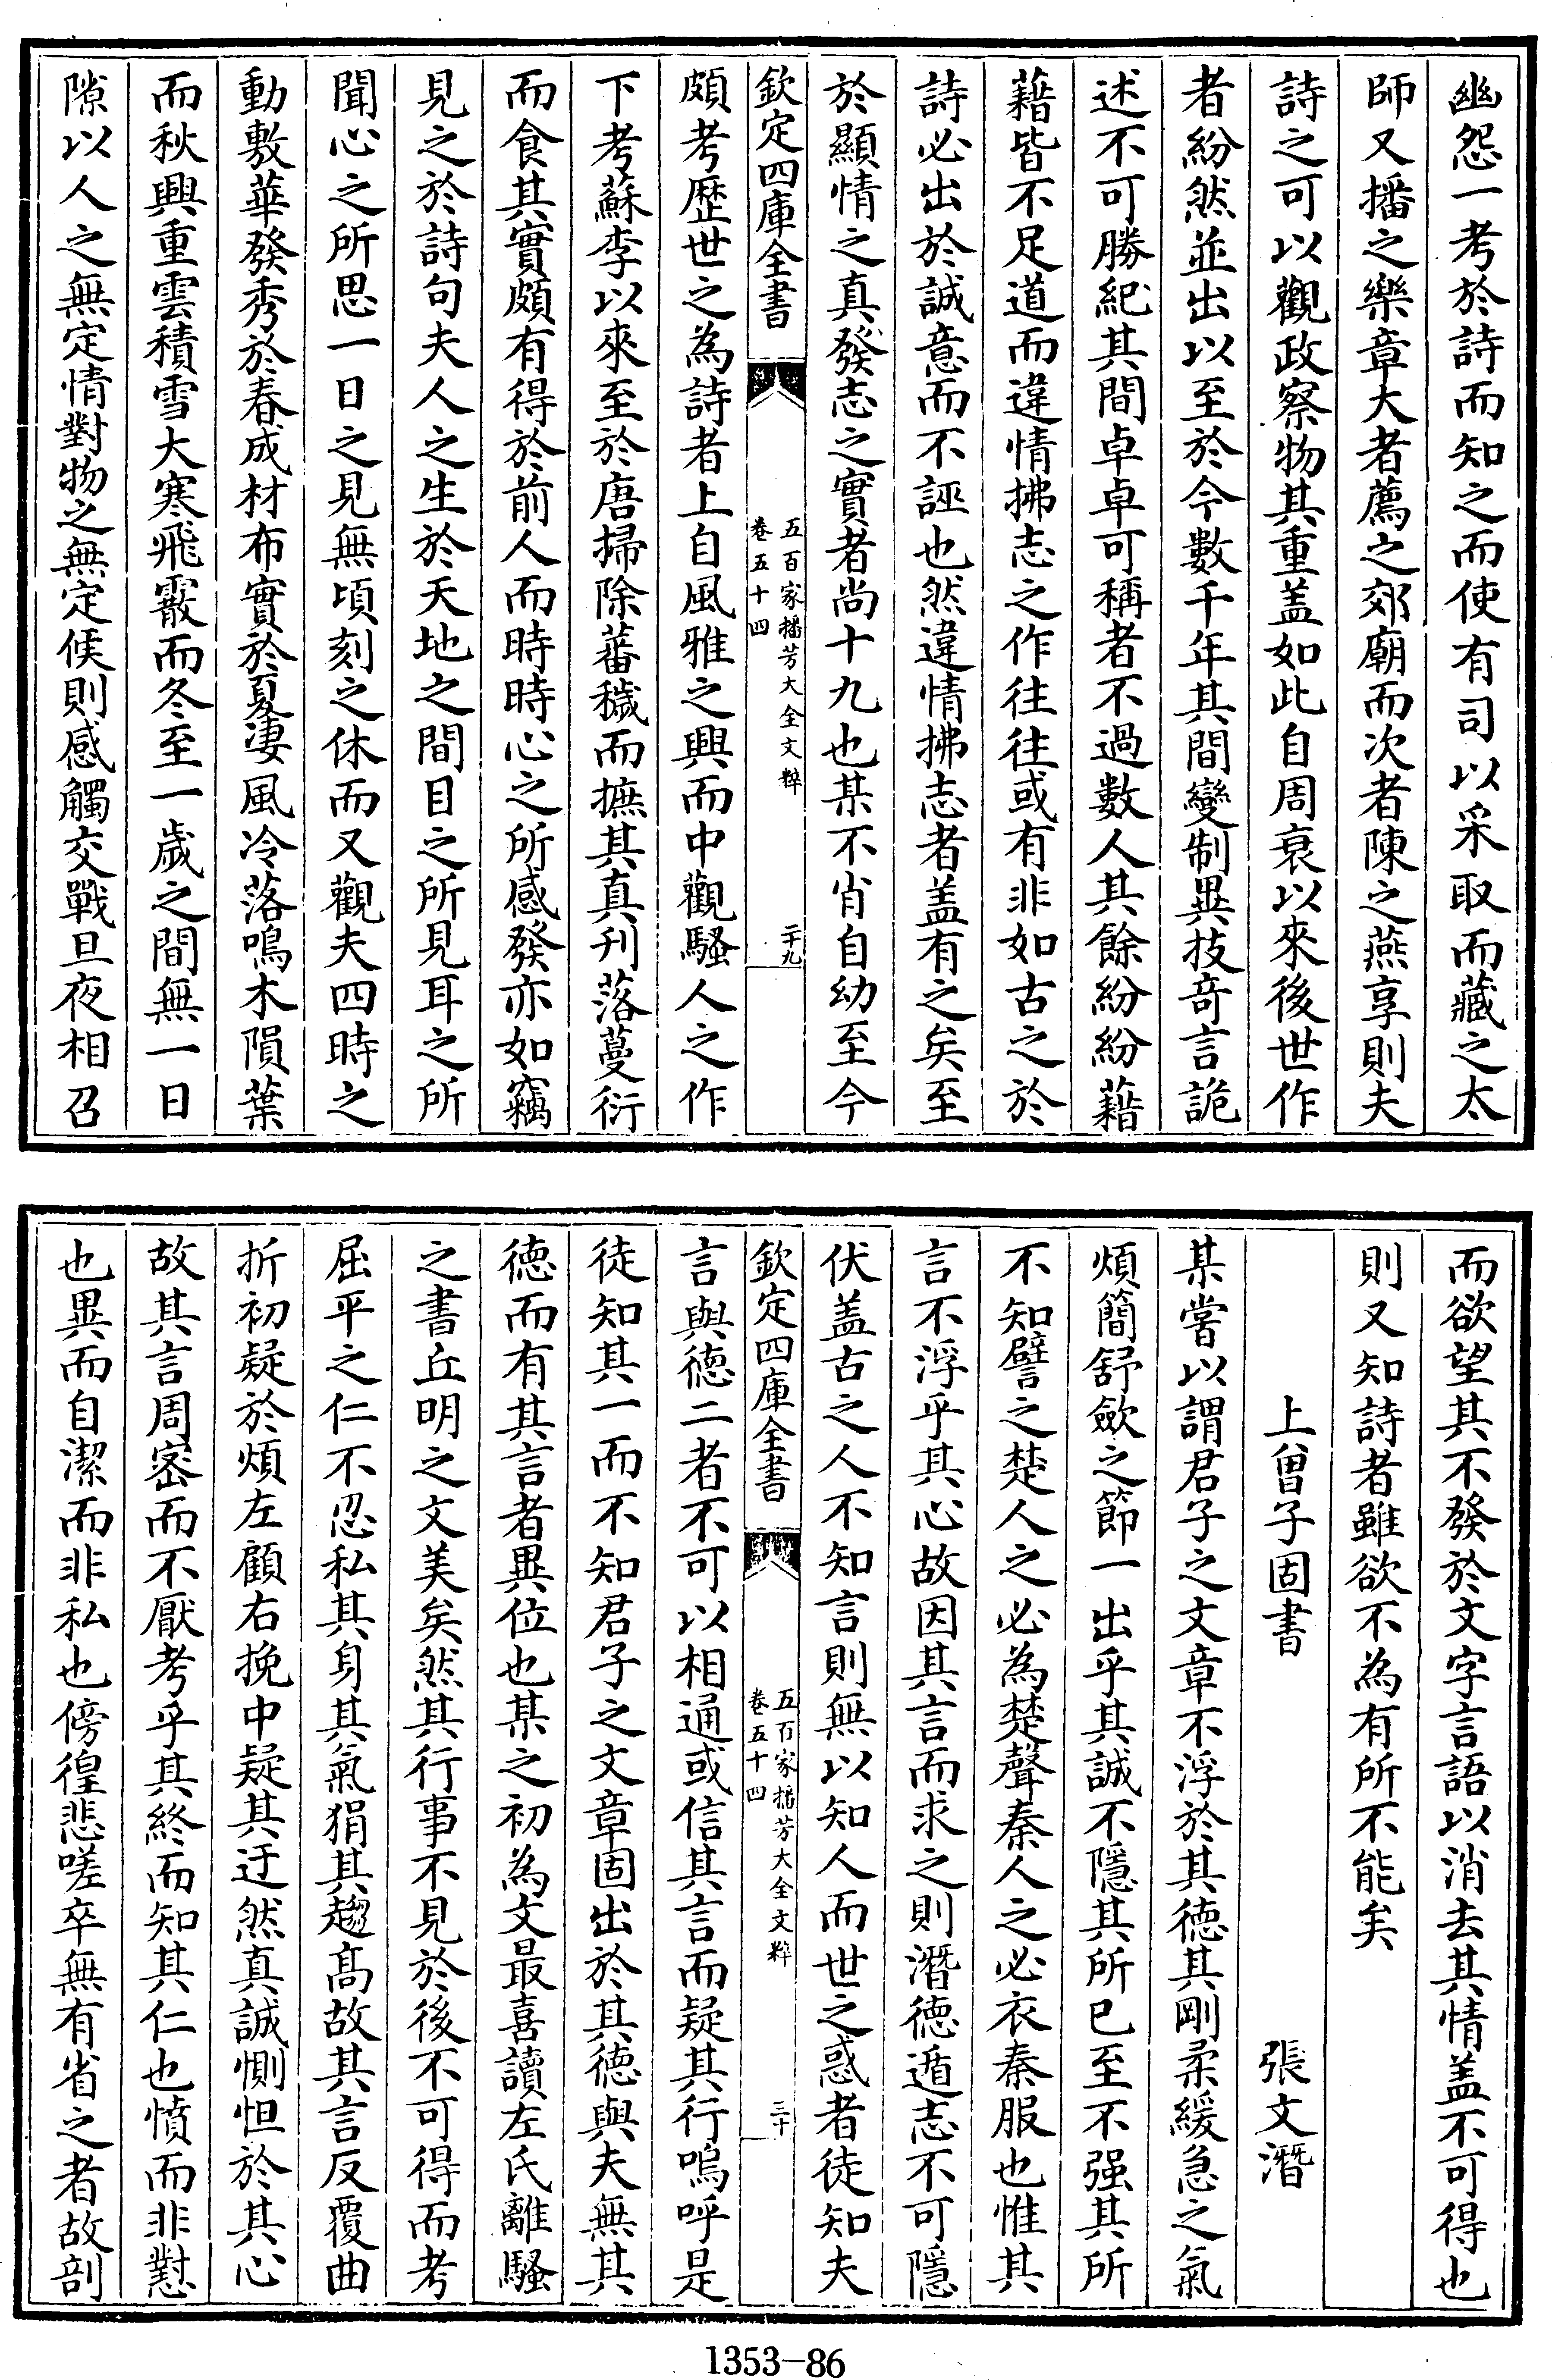 幽怨一考於詩而知之而使有司以采取而藏之太
師又播之樂章大者薦之郊廟而次者陳之燕享則夫
詩之可以觀政察物其重盖如此自周衰以來後世作
者紛然並出以至於今數千年其間變制異技竒言詭
述不可勝紀其間卓卓可稱者不過數人其餘紛紛藉
藉皆不足道而違情拂志之作往往或有非如古之於
詩必出於誠意而不誣也然違情拂志者盖有之矣至
於顯情之真發志之實者尚十九也某不肖自幼至今
欽定四庫全書
五百家播芳大全文粹
卷五十四
二十九
頗考歴世之為詩者上自風雅之興而中觀騷人之作
下考蘇李以來至於唐掃除蕃穢而摭其真刋落蔓衍
而食其實頗有得於前人而時時心之所感發亦如竊
見之於詩句夫人之生於天地之間目之所見耳之所
聞心之所思一日之見無頃刻之休而又觀夫四時之
動敷華發秀於春成材布實於夏凄風冷落鳴木隕葉
而秋興重雲積雪大寒飛霰而冬至一歲之間無一日
隙以人之無定情對物之無定候則感觸交戰旦夜相召
而欲望其不發於文字言語以消去其情盖不可得也
則又知詩者雖欲不為有所不能矣
上曾子固書 張文潛
某嘗以謂君子之文章不浮於其徳其剛柔緩急之氣
煩簡舒歛之節一出乎其誠不隱其所已至不强其所
不知譬之楚人之必為楚聲秦人之必衣秦服也惟其
言不浮乎其心故因其言而求之則潛徳遁志不可隱
伏盖古之人不知言則無以知人而世之惑者徒知夫
欽定四庫全書
五百家播芳大全文粹
卷五十四
三十
言與徳二者不可以相通或信其言而疑其行嗚呼是
徒知其一而不知君子之文章固出於其徳與夫無其
徳而有其言者異位也某之初為文最喜讀左氏離騷
之書丘明之文美矣然其行事不見於後不可得而考
屈平之仁不忍私其身其氣狷其趨髙故其言反覆曲
折初疑於煩左顧右挽中疑其迂然真誠惻怛於其心
故其言周宻而不厭考乎其終而知其仁也憤而非懟
也異而自潔而非私也傍徨悲嗟卒無有省之者故剖
1353-86